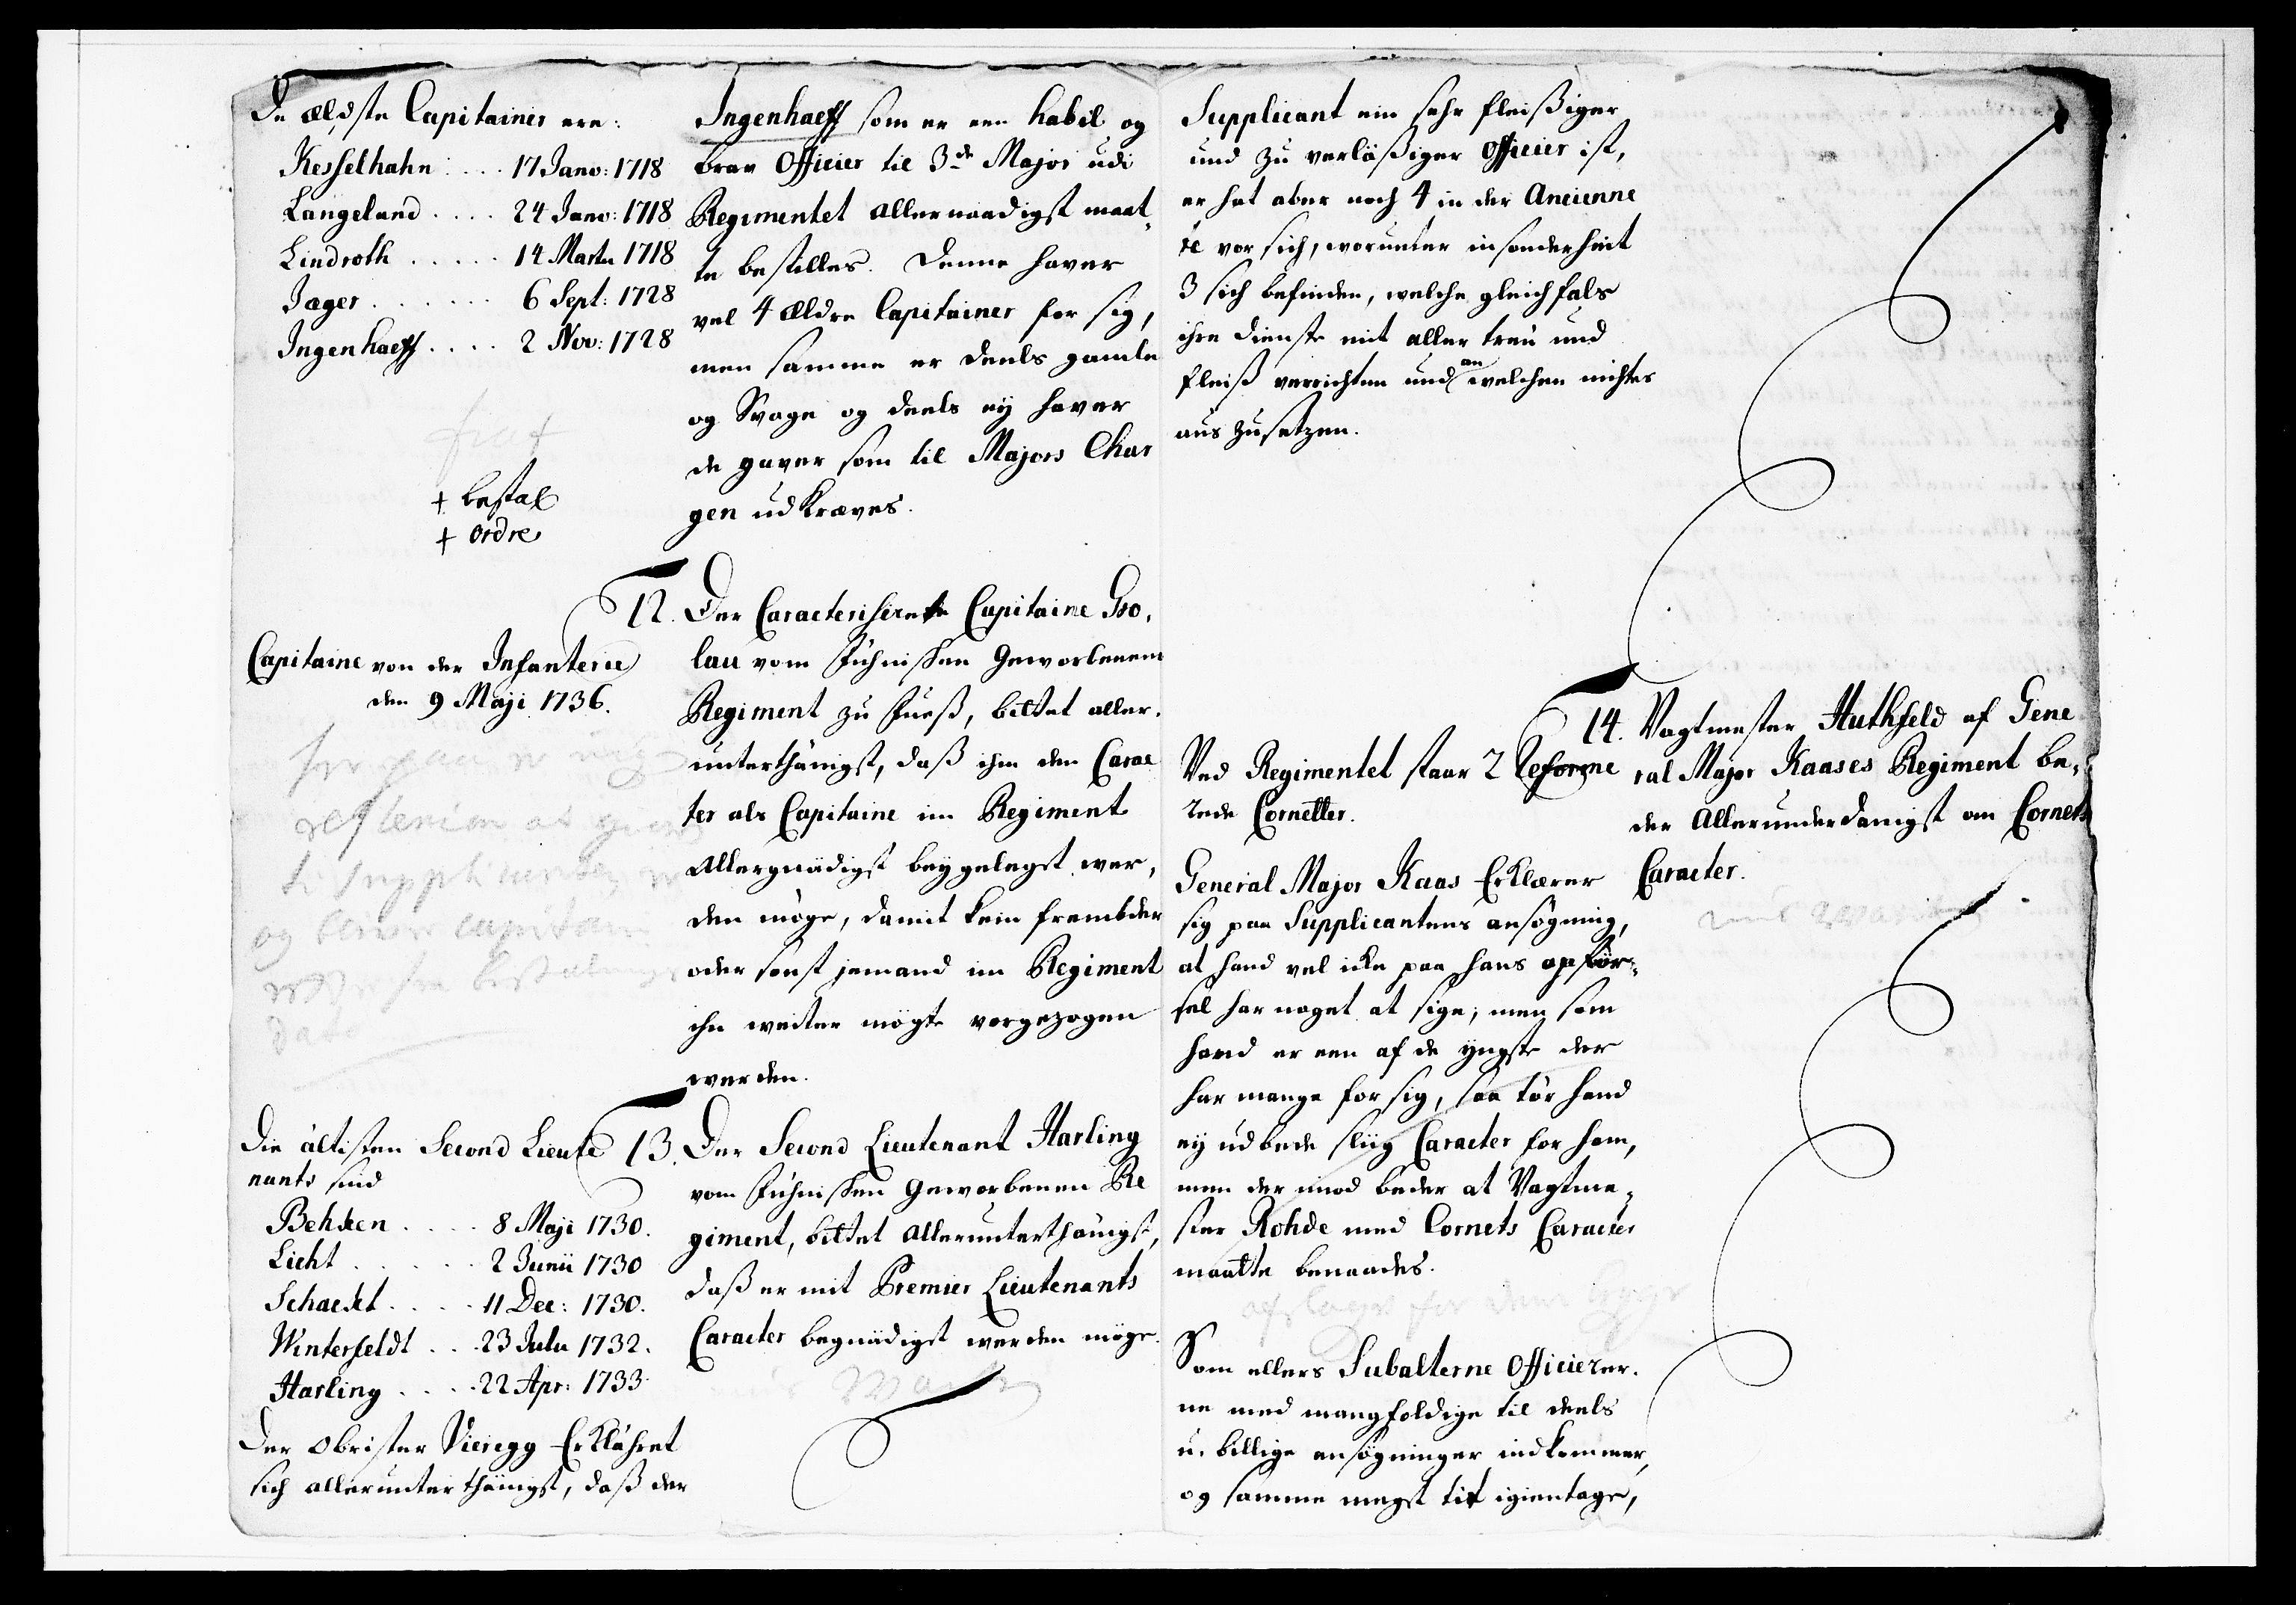 De ældste Capitainer ere:
Kesselhahn . . . . 17 Janv: 1718
Langeland . . . . 24 Janv: 1718
Lindroth . . . . . 14 Marty 1718
Jager . . . . . . . 6 Sept: 1728
Ingenhaeff . . . . 2 Nov: 1728
fiat
+ bestal
+ ordre
Capitaine von der Infanterie
den 9 Maji 1736.
reflexion at
Supplicanten
og bliver capitain
Die ältisten Second Lieute
nants sind
Behken . . . . 8 Maji 1730.
Licht . . . . . . 2 Junii 1730
Schackt . . . . 11 Dec: 1730.
Winterfeldt . . . 23 July 1732.
Harling . . . . 22 Apr: 1733
Der Obrister Vieregg Erklähret
sich allerunterthänigst, daß der
Ingenhaeff som er een habil og
brav Officier til 3de Major udi
Regimentet allernaadigst maat,
te bestilles. Denne haver
vel 4 Ældre Capitainer for sig,
men samme er deels gamle
og Svage og deels ey haver
de gaver som til Majors Char
gen udkræves.
12. Der Caracterisirete Capitaine Gro,
lau vom Führnischen Geworbenem
Regiment zu Fueß, bittet aller,
unterthänigst, daß ihm den Carac
ter als Capitaine im Regiment
Allergnädigst beygelegst wer,
den möge, damit kein frembder
oder sonst jemand im Regiment
ihn weiter mögte vorgezogen
werden.
13. Der Second Lieutenant Harling
vom Führnischen Geworbenen Re
giment, bittet Allerunterthänigst,
daß er mit Premier Lieutenants
Caracter begnädigst werden möge.
Supplicant ein sehr fleißiger
und zu verläßiger Officier ist,
er hat aber noch 4 in der Ancienne
te vor sich, worunter insonderheit
3 sich befinden, welche gleichfals
ihre Dienste mit aller treu und
fleiß verrichten und an welchen nichtes
aus zusetzen.
Ved Regimentet staar 2 Reforme
rede Cornetter.
General Major Kaas Erklærer
sig paa Supplicantens ansøgning,
at hand vel icke paa hans opför,
sel har noget at sige; men som
hand er een af de yngste der
har mange for sig, saa tör hand
ey udbede sliig Caracter for ham,
men der imod beder at Vagtme,
ster Rohde med Cornets Caracter
maatte benaades.
Som ellers Subalterne Officierer,
ne med mangfoldige til deels
u,billige ansøgninger indkommer,
og samme megst tit igientage,
14. Vagtmester Huthfeld af Gene
ral Major Kaases Regiment be,
der Allerunderdanigst om Cornets
Caracter.